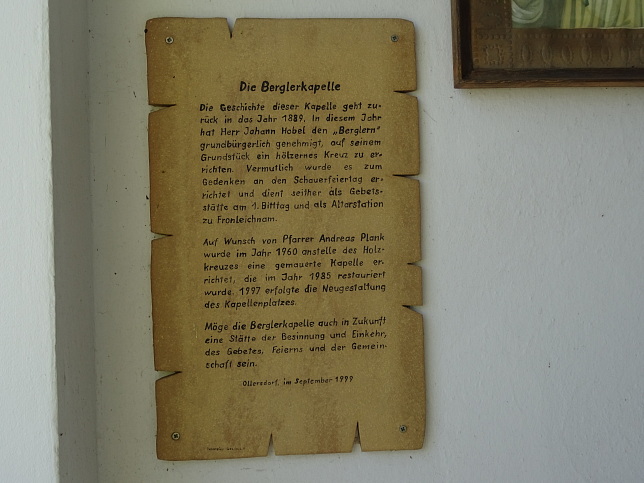 Die Berglerkapelle
Die Geschichte dieser Kapelle geht zu-
rück in das Jahr 1889. In diesem Jahr
hat Herr Johann Hobel den „Berglern"
grundbürgerlich genehmigt, auf seinem
Grundstück ein hölzernes Kreuz zu er-
richten. Vermutlich wurde es zum
Gedenken an den Schauerfeiertag er-
richtet und dient seither als Gebets-
stätte am 1. Bitttag und als Altarstation
zu Fronleichnam.
Auf Wunsch von Pfarrer Andreas Plank
wurde im Jahr 1960 anstelle des Holz-
kreuzes eine gemauerte Kapelle er-
richtet, die im Jahr 1985 restauriert
wurde. 1997 erfolgte die Neugestaltung
des Kapellenplatzes.
Möge die Berglerkapelle auch in Zukunft
eine Stätte der Besinnung und Einkehr,
des Gebetes, Feierns und der Gemein-
schaft sein.
Ollersdorf, im September 1999